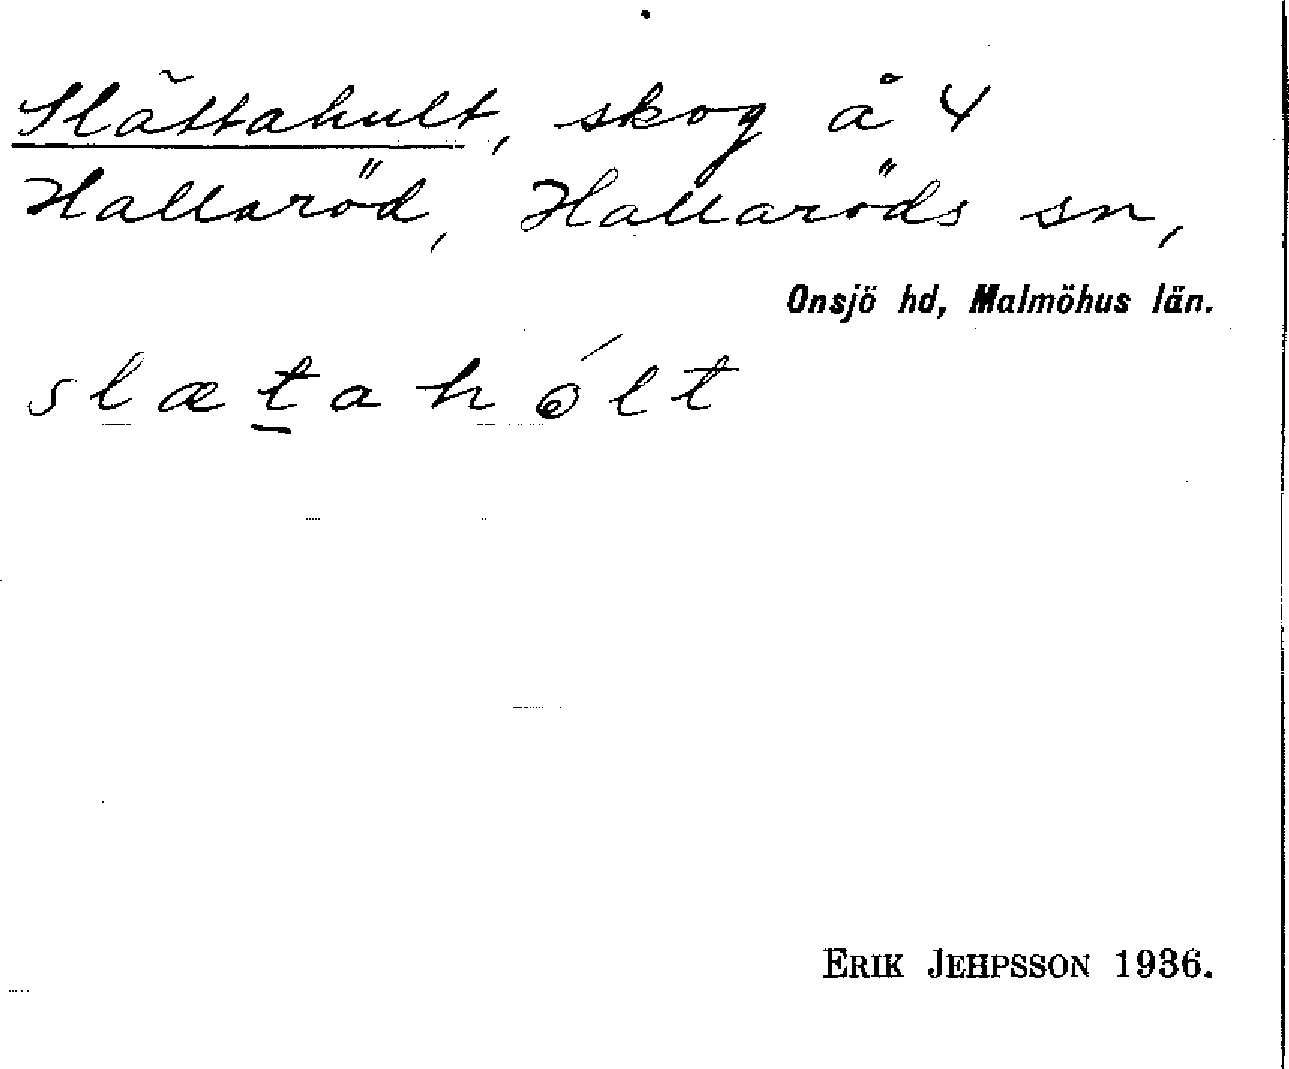 Slättahult, skog å 4
Hallaröd, Hallaröds sn,
Onsjö hd, Malmöhus län.
slæṯahólt
ERIK JEHPSSON 1936.